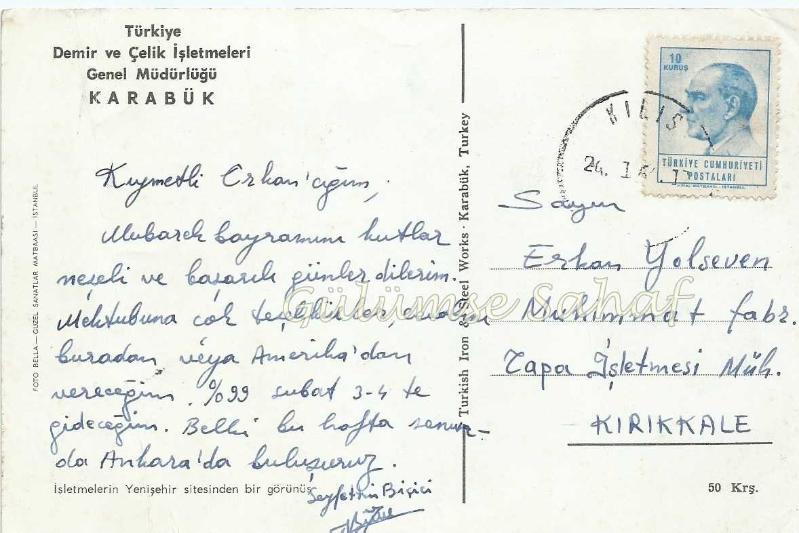 Türkiye
Demir ve Çelik İşletmeleri
Genel Müdürlüğü
KARABÜK
Kıymetli Erkan'cığım,
Mubarek bayramını kutlar
neşeli ve başarılı günler dilerim.
Mektubuna çok teşekkürler,
buradan veya Amerika'dan
vereceğim. %99 şubat 3-4 te
gideceğim. Belki bu hafta sonun-
da Ankara'da buluşuruz.
Seyfettin Biçici
İşletmelerin Yenişehir sitesinden bir görünüş
FOTO BELLA — GÜZEL SANATLAR MATBAASI — İSTANBUL
Turkish Iron & Steel Works - Karabük, Turkey
10
KURUŞ
TÜRKİYE CUMHURİYETİ
POSTALARI
KILIS
24. 1
Sayın
Erkan Yolseven
Mühimmat fabr.
Tapa İşletmesi Müh.
KIRIKKALE
50 Krş.
Gülümse Sahaf